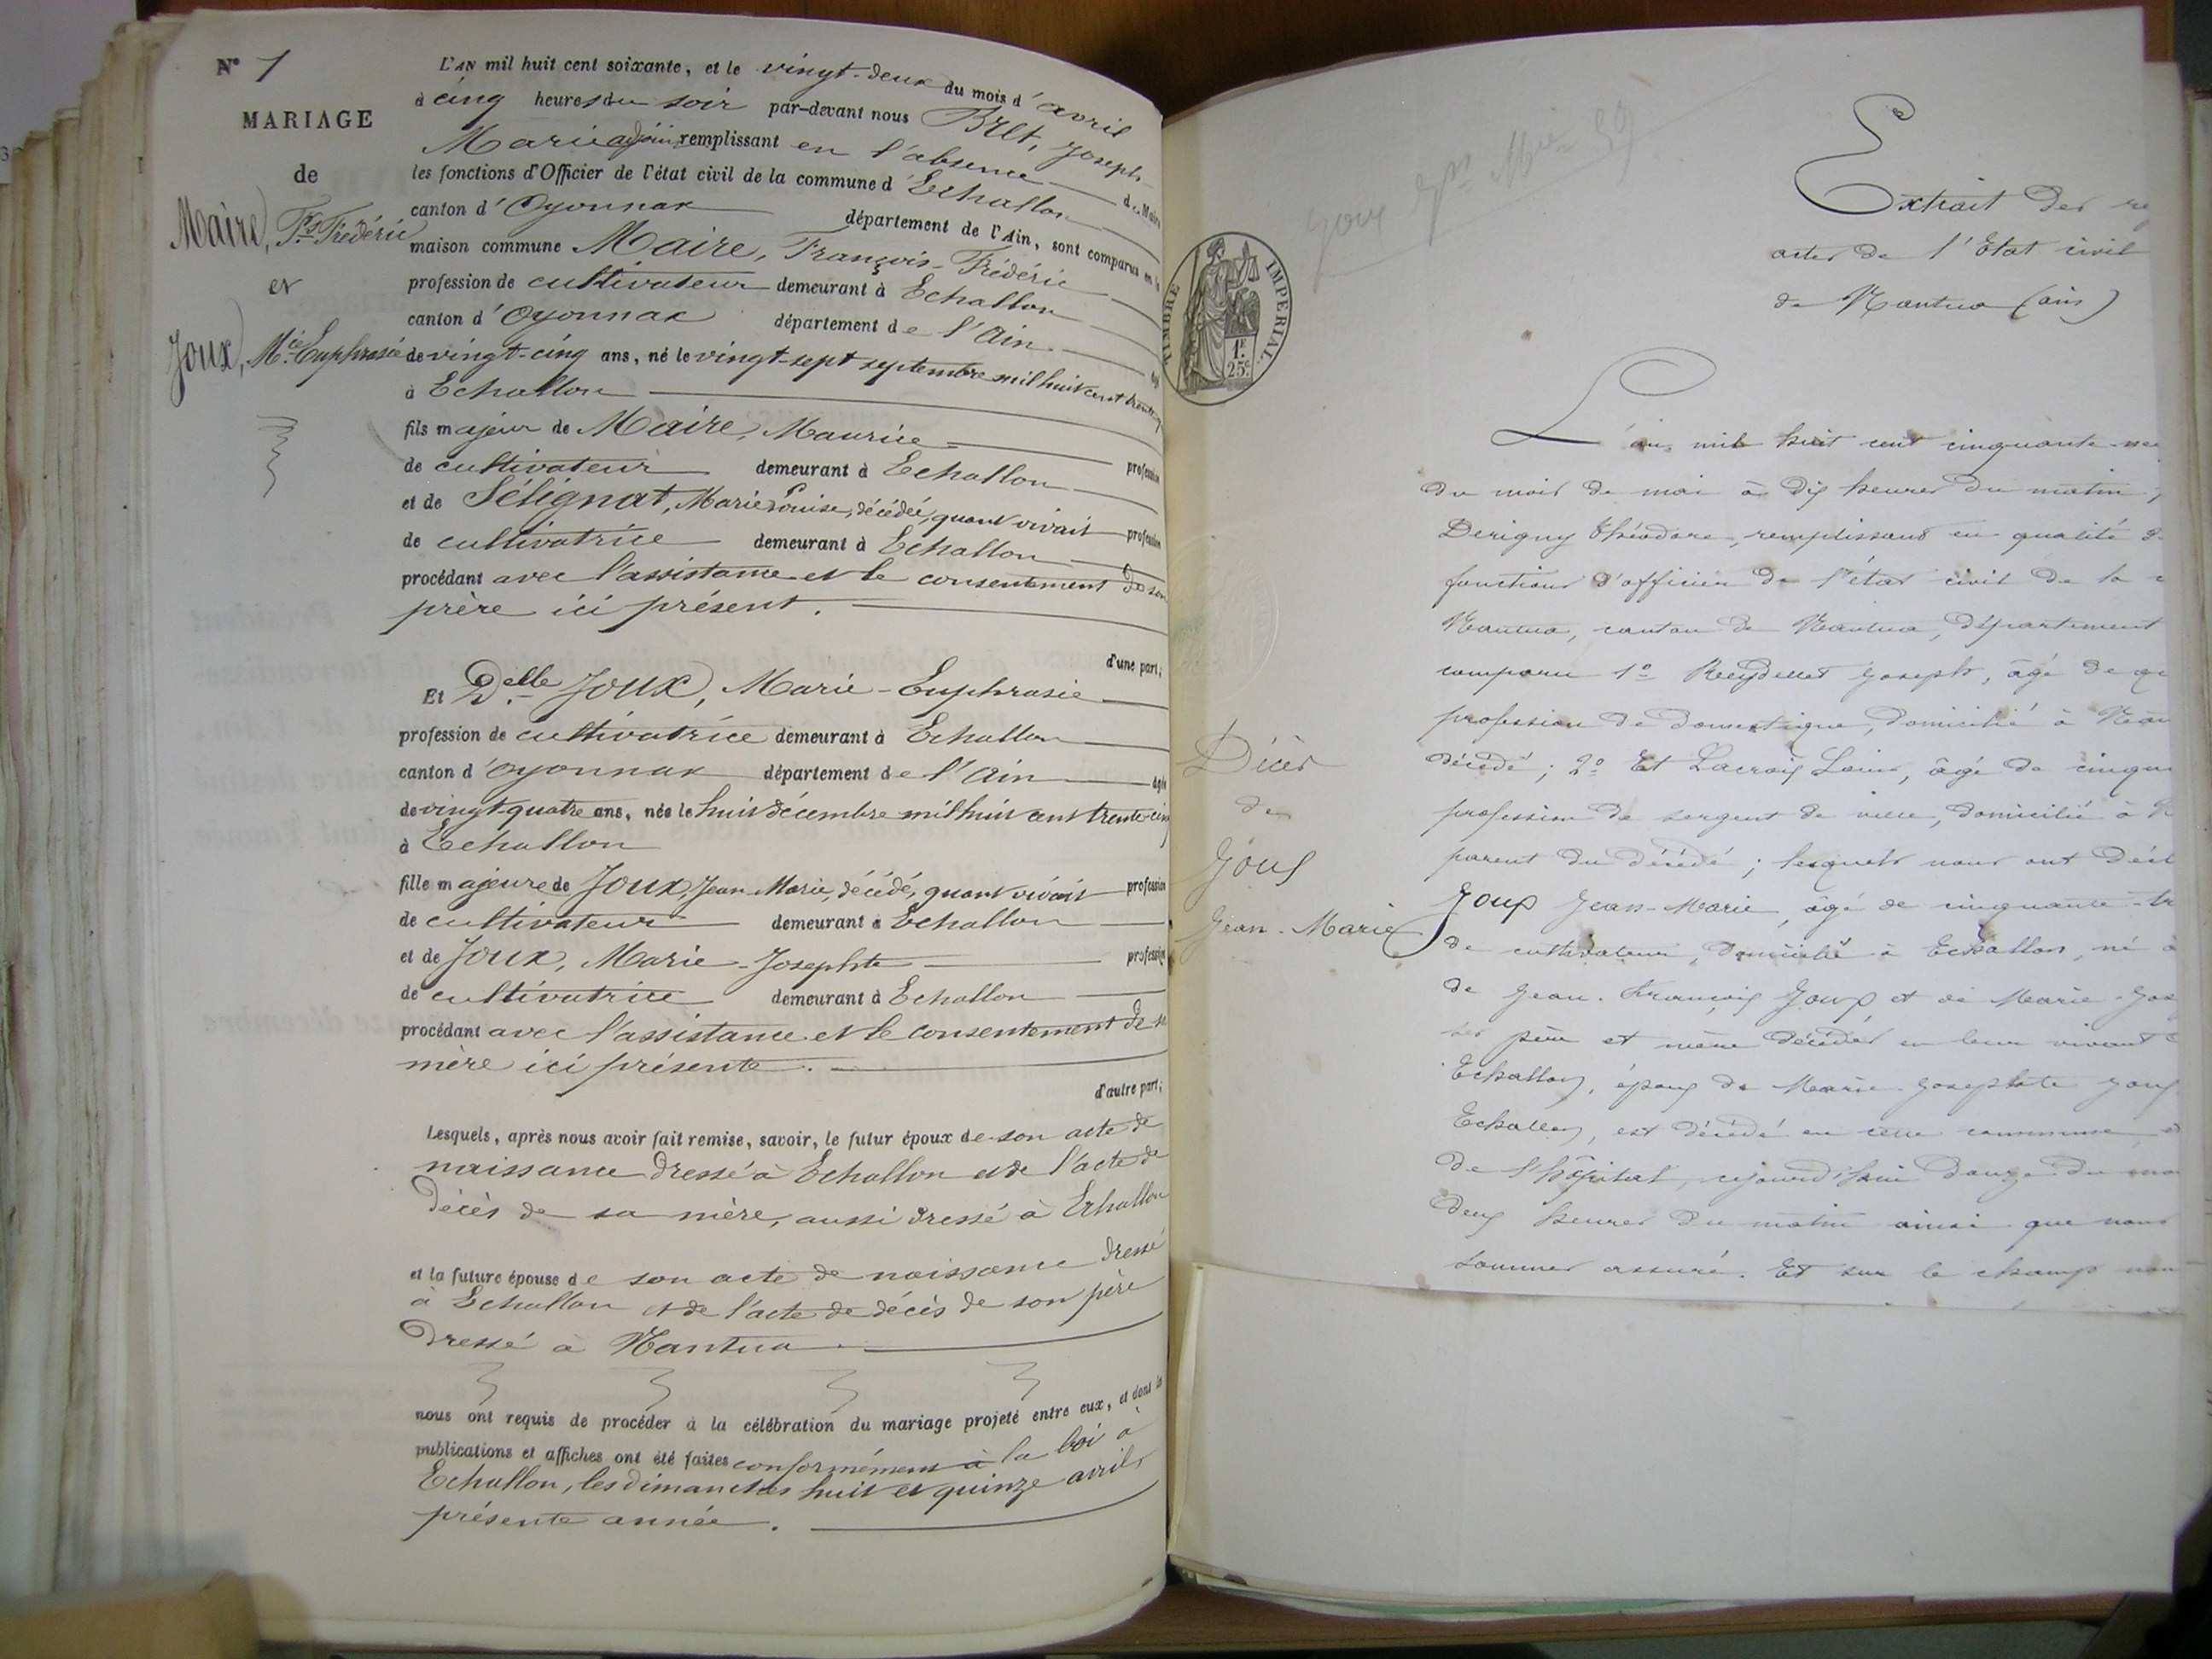 N° 1
MARIAGE
de
Maire, Fs Frédéric
et
Joux, Mie Euphrasie
L'AN mil huit cent soixante, et le vingt-deux du mois d'avril
à cinq heures du soir par-devant nous Joseph-
Marie adjoint remplissant en l'absence du Maire
les fonctions d'Officier de l'état civil de la commune d'Echallon
canton d'Oyonnax département de l'Ain, sont comparus en la
maison commune Maire, François-Frédéric
profession de cultivateur demeurant à Echallon
canton d'Oyonnax département de l'Ain âgé
de vingt-cinq ans, né le vingt-sept septembre mil huit cent trente
à Echallon
fils majeur de Maire, Maurice profession
de cultivateur demeurant à Echallon
et de Sélignat, Marie Louise, décédée, quant vivait profession
de cultivatrice demeurant à Echallon
procédant avec l'assistance et le consentement de son
père ici présent.
d'une part;
Et Delle Joux, Marie-Euphrasie
profession de cultivatrice demeurant à Echallon
canton d'Oyonnax département de l'Ain âgée
de vingt-quatre ans, née le huit décembre mil huit cent trente-cinq
à Echallon
fille majeure de Joux, Jean-Marie, décédé, quant vivait profession
de cultivateur demeurant à Echallon
et de Joux, Marie-Josephte profession
de cultivatrice demeurant à Echallon
procédant avec l'assistance et le consentement de sa
mère ici présente.
d'autre part;
Lesquels, après nous avoir fait remise, savoir, le futur époux de son acte de
naissance dressé à Echallon et de l'acte de
décès de sa mère, aussi dressé à Echallon
et la future épouse de son acte de naissance dressé
à Echallon et de l'acte de décès de son père
dressé à Nantua
nous ont requis de procéder à la célébration du mariage projeté entre eux, et dont les
publications et affiches ont été faites conformément à la loi à
Echallon, les dimanches huit et quinze avril,
présente année.
TIMBRE IMPERIAL
1F.
25c.
Extrait des re
actes de l'Etat civil
de Nantua (ain)
L'an mil huit cent cinquante-neu
du mois de mai à dix heures du matin,
Derigny théodore, remplissant en qualité d
fonctions d'officier de l'état civil de la c
Nantua, canton de Nantua, département
comparu 1° Reydellet Joseph, âgé de qu
profession de domestique, domicilié à Nan
décédé; 2° Et Lacroix Louis, âgé de cinqu
profession de sergent de ville, domicilié à N
parent du décédé; lesquels nous ont décl
Joux Jean-Marie, âgé de cinquante-tr
de cultivateur, domicilié à Echallon, né à
de Jean-François Joux et de Marie-Jos
ses père et mère décédés en leur vivant
Echallon, époux de Marie-Josephte Joux
Echallon, est décédé en cette commune
de l'hôpital, cejourd'hui douze du moi
deux heures du matin ainsi que nous
sommes assuré. Et sur le champ nou
Décès
de
Joux
Jean-Marie